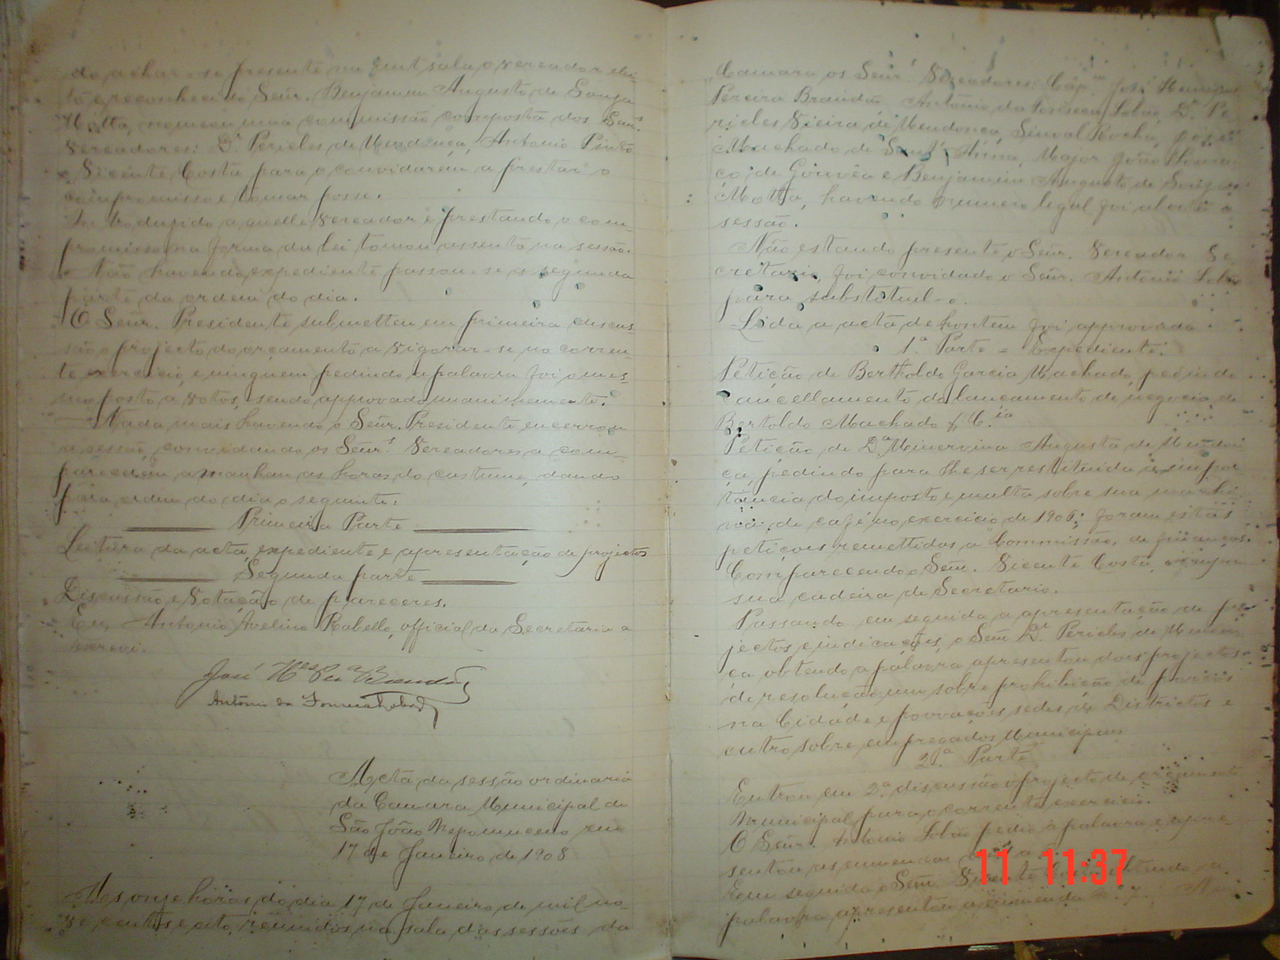 do achar-se presente na Ent. sala o vereador elei-
to e reconhecido Señr. Benjamim Augusto de Souza
Motta, nomeou uma commissão composta dos Senrs.
Vereadores: Dr. Pericles de Mendonça, Antonio Pinto
e Vicente Costa para o convidarem a prestar o
compromisso e tomar posse.
Introdusido aquelle Vereador e prestando o com-
promisso na forma da lei tomou assento na sessão.
Não havendo expediente passou-se a segunda
parte da ordem do dia.
O Señr. Presidente submetteu em primeira discus-
são o projecto do orçamento a vigorar-se no corren-
te exercicio, e ninguem pedindo a palavra foi o mes-
mo posto a votos, sendo approvado unanimemente.
Nada mais havendo o Señr. Presidente encerrou
a sessão, convidando os Señrs. Vereadores a com-
parecerem amanhan as horas do costume, dando
para ordem do dia o seguinte:
Primeira Parte
Leitura da acta, expediente e apresentação de projectos
Segunda parte
Discussão e Votação de pareceres.
Eu, Antonio Avelino Rabello, official da Secretaria o
escrevi.
José Brandão
Antônio da Fonseca Lobão
Acta da sessão ordinaria
da Camara Municipal de
São João Nepomuceno em
17 de Janeiro de 1908
As onze horas do dia 17 de Janeiro de mil no-
ve centos e oito, reunidos na sala das sessões da
Camara os Senrs. Vereadores: Capm. José Henriques
Pereira Brandão, Antônio da Fonseca Lobão, Dr. Pe-
ricles Vieira de Mendonça, Sinval Rocha, José
Machado de Sant'Anna, Major João
de Gouvêa e Benjamim Augusto de Souza
Motta, havendo numero legal foi aberta a
sessão.
Não estando presente o Señr. Vereador Se-
cretario, foi convidado o Señr. Antonio Lobão
para substituil-o.
Lida a acta de hontem foi approvada.
1ª Parte = Expediente.
Petição de Bertholdo Garcia Machado, pedindo
cancellamento do lançamento de negocio de
Bertoldo Machado & Cia
Petição de Da. Minervina Augusta de Mendon-
ça, pedindo para lhe ser restituida a impor-
tancia do imposto e multa sobre sua machi-
na de café no exercicio de 1906; foram estas
petições remettidas a Commissão de finanças.
Comparecendo o Senr. Vicente Costa, occupou
sua cadeira de Secretario.
Passando em seguida a apresentação de pro-
jectos e indicações, o Senr. Dr. Pericles de Mendon-
ça obtendo a palavra apresentou dois projectos
de resolução um sobre prohibição de porcos
na Cidade e povoações sedes de Districtos e
outro sobre empregados Municipaes
2ª Parte
Entrou em 2ª discussão o projecto de orçamento
Municipal para o corrente exercicio.
O Señr. Antonio Lobão pedio a palavra e apre-
sentou as emendas
Em seguida o Señr. Vicente Costa a
palavra apresentou a emenda n. 7.
11 11:37